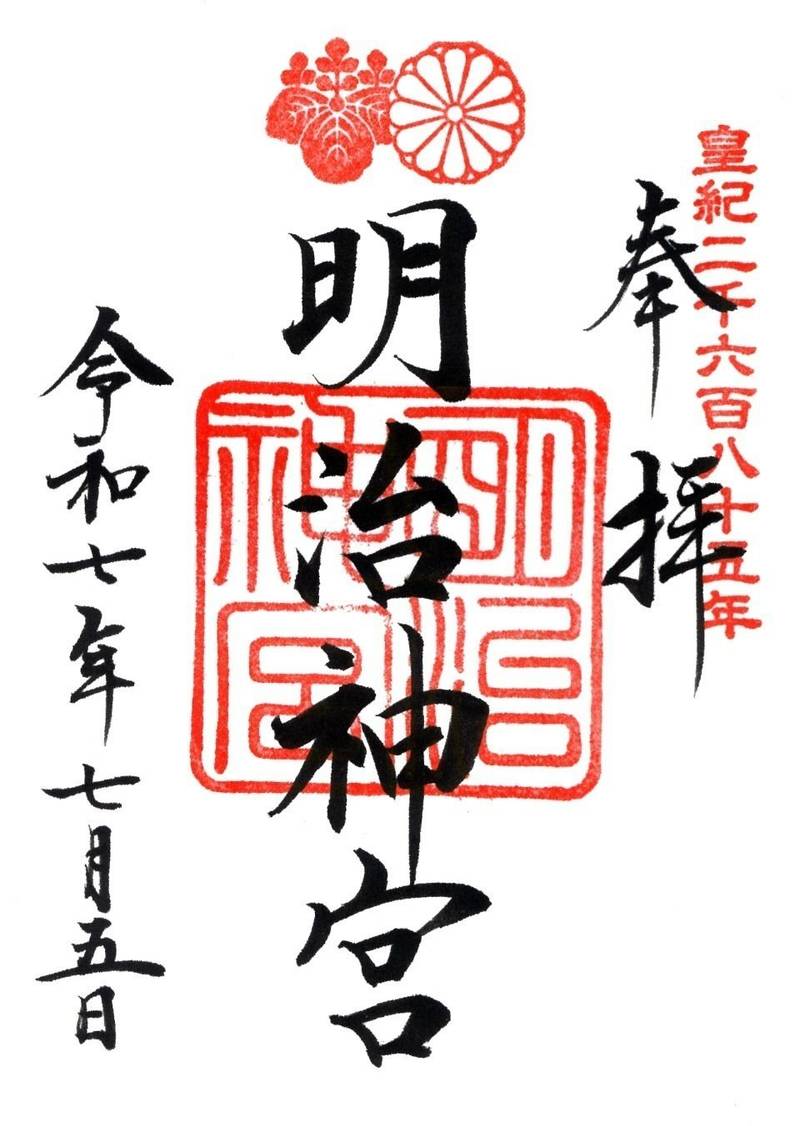 皇紀二千六百八十五年
奉拝
明治神宮
明治神宮
令和七年七月五日